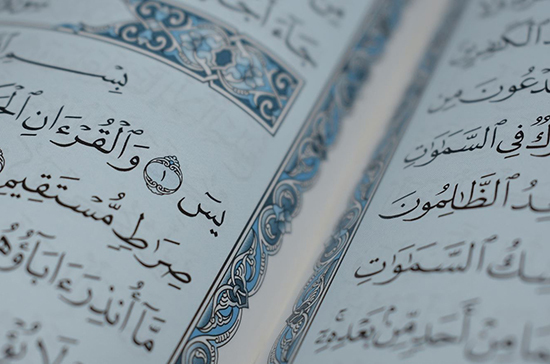 ٱلْكَٰفِرِينَ
دْعُونَ مِن
كٌ فِي ٱلسَّمَٰوَٰتِ
دُ ٱلظَّٰلِمُونَ
سِكُ ٱلسَّمَٰوَٰتِ
مِنْ أَحَدٍ مِّنۢ بَعْدِهِۦٓ
جَآءَ أَجَلُ
بِسْمِ
يسٓ ١ وَٱلْقُرْءَانِ ٱلْحَ
صِرَٰطٍ مُّسْتَقِيمٍ
مَّآ أُنذِرَ ءَابَآؤُهُ